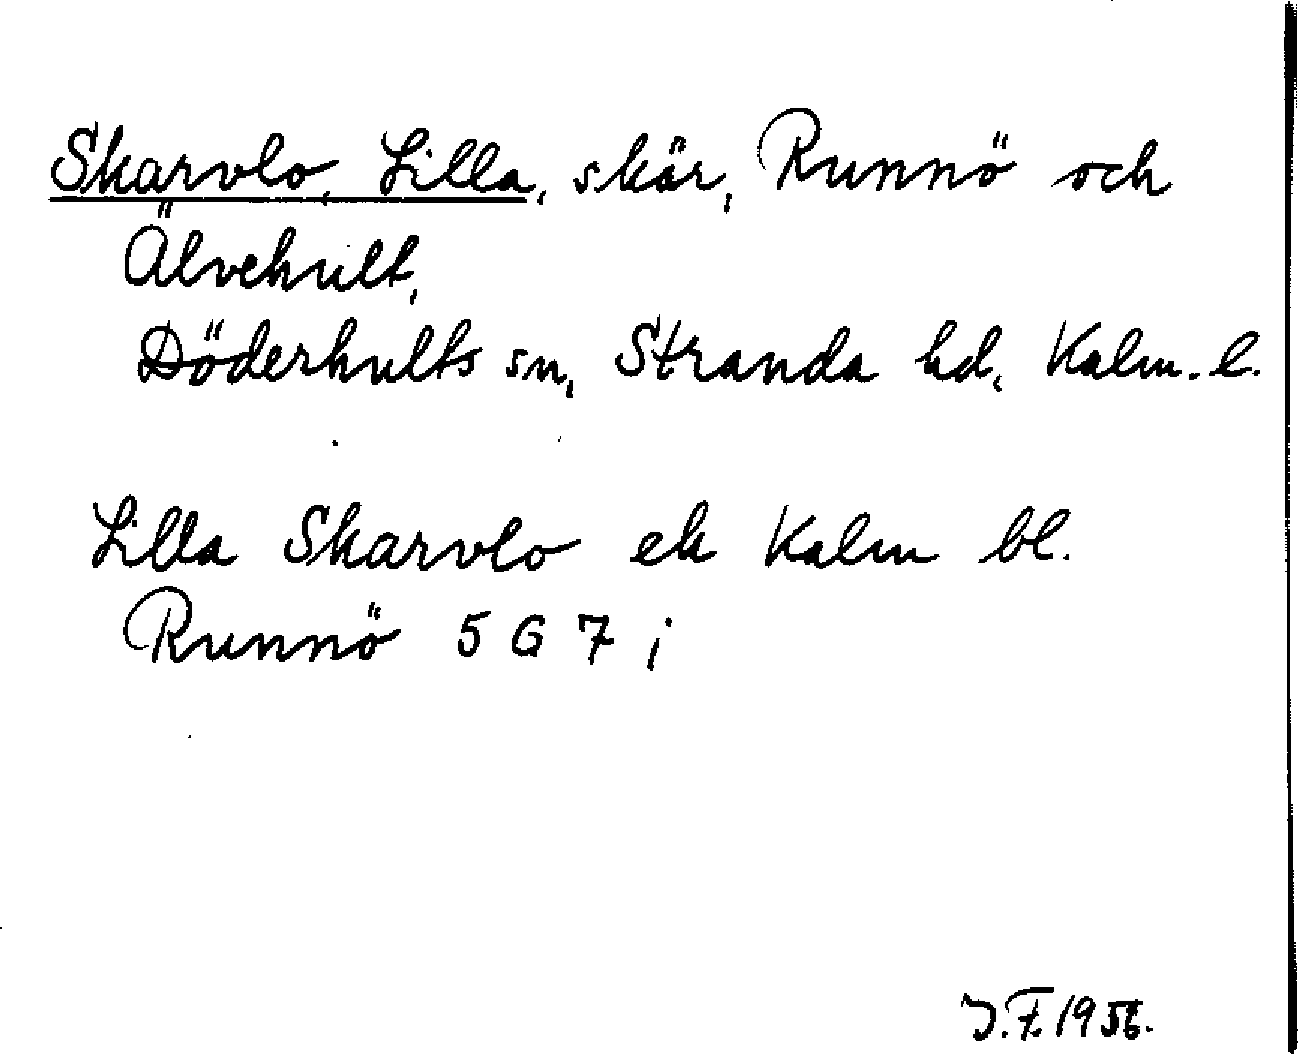 Skarvlo, Lilla, skär, Runnö och
Älvehult,
Döderhults sn, Stranda hd, Kalm. l.
Lilla Skarvlo ek Kalm bl.
Runnö 5 G 7 i
J.F. 1956.